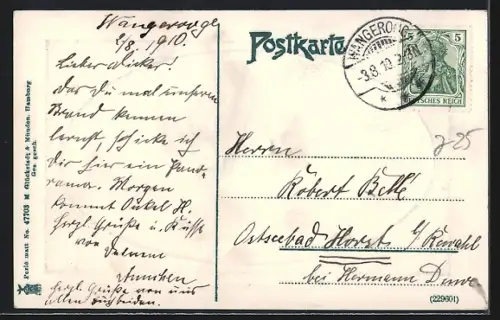 Wangerooge
2/8. 1910.
Lieber Dicker!
Das Du mal unseren
Strand kennen
lernst, schicke ich
Dir hier ein Pano-
rama. Morgen
kommt Onkel H.
Herzl. Grüße u. Küsse
von Deinem
Annchen
Herzl. Grüße von uns
allen
Postkarte
WANGEROOGE
-3.8.10.
5
DEUTSCHES REICH
325
Herrn
Robert
Ostseebad Horst b/Rewahl
bei Hermann
(229601)
Paris matt No. 47703 M Glückstadt & Münden, Hamburg
Ges. gesch.